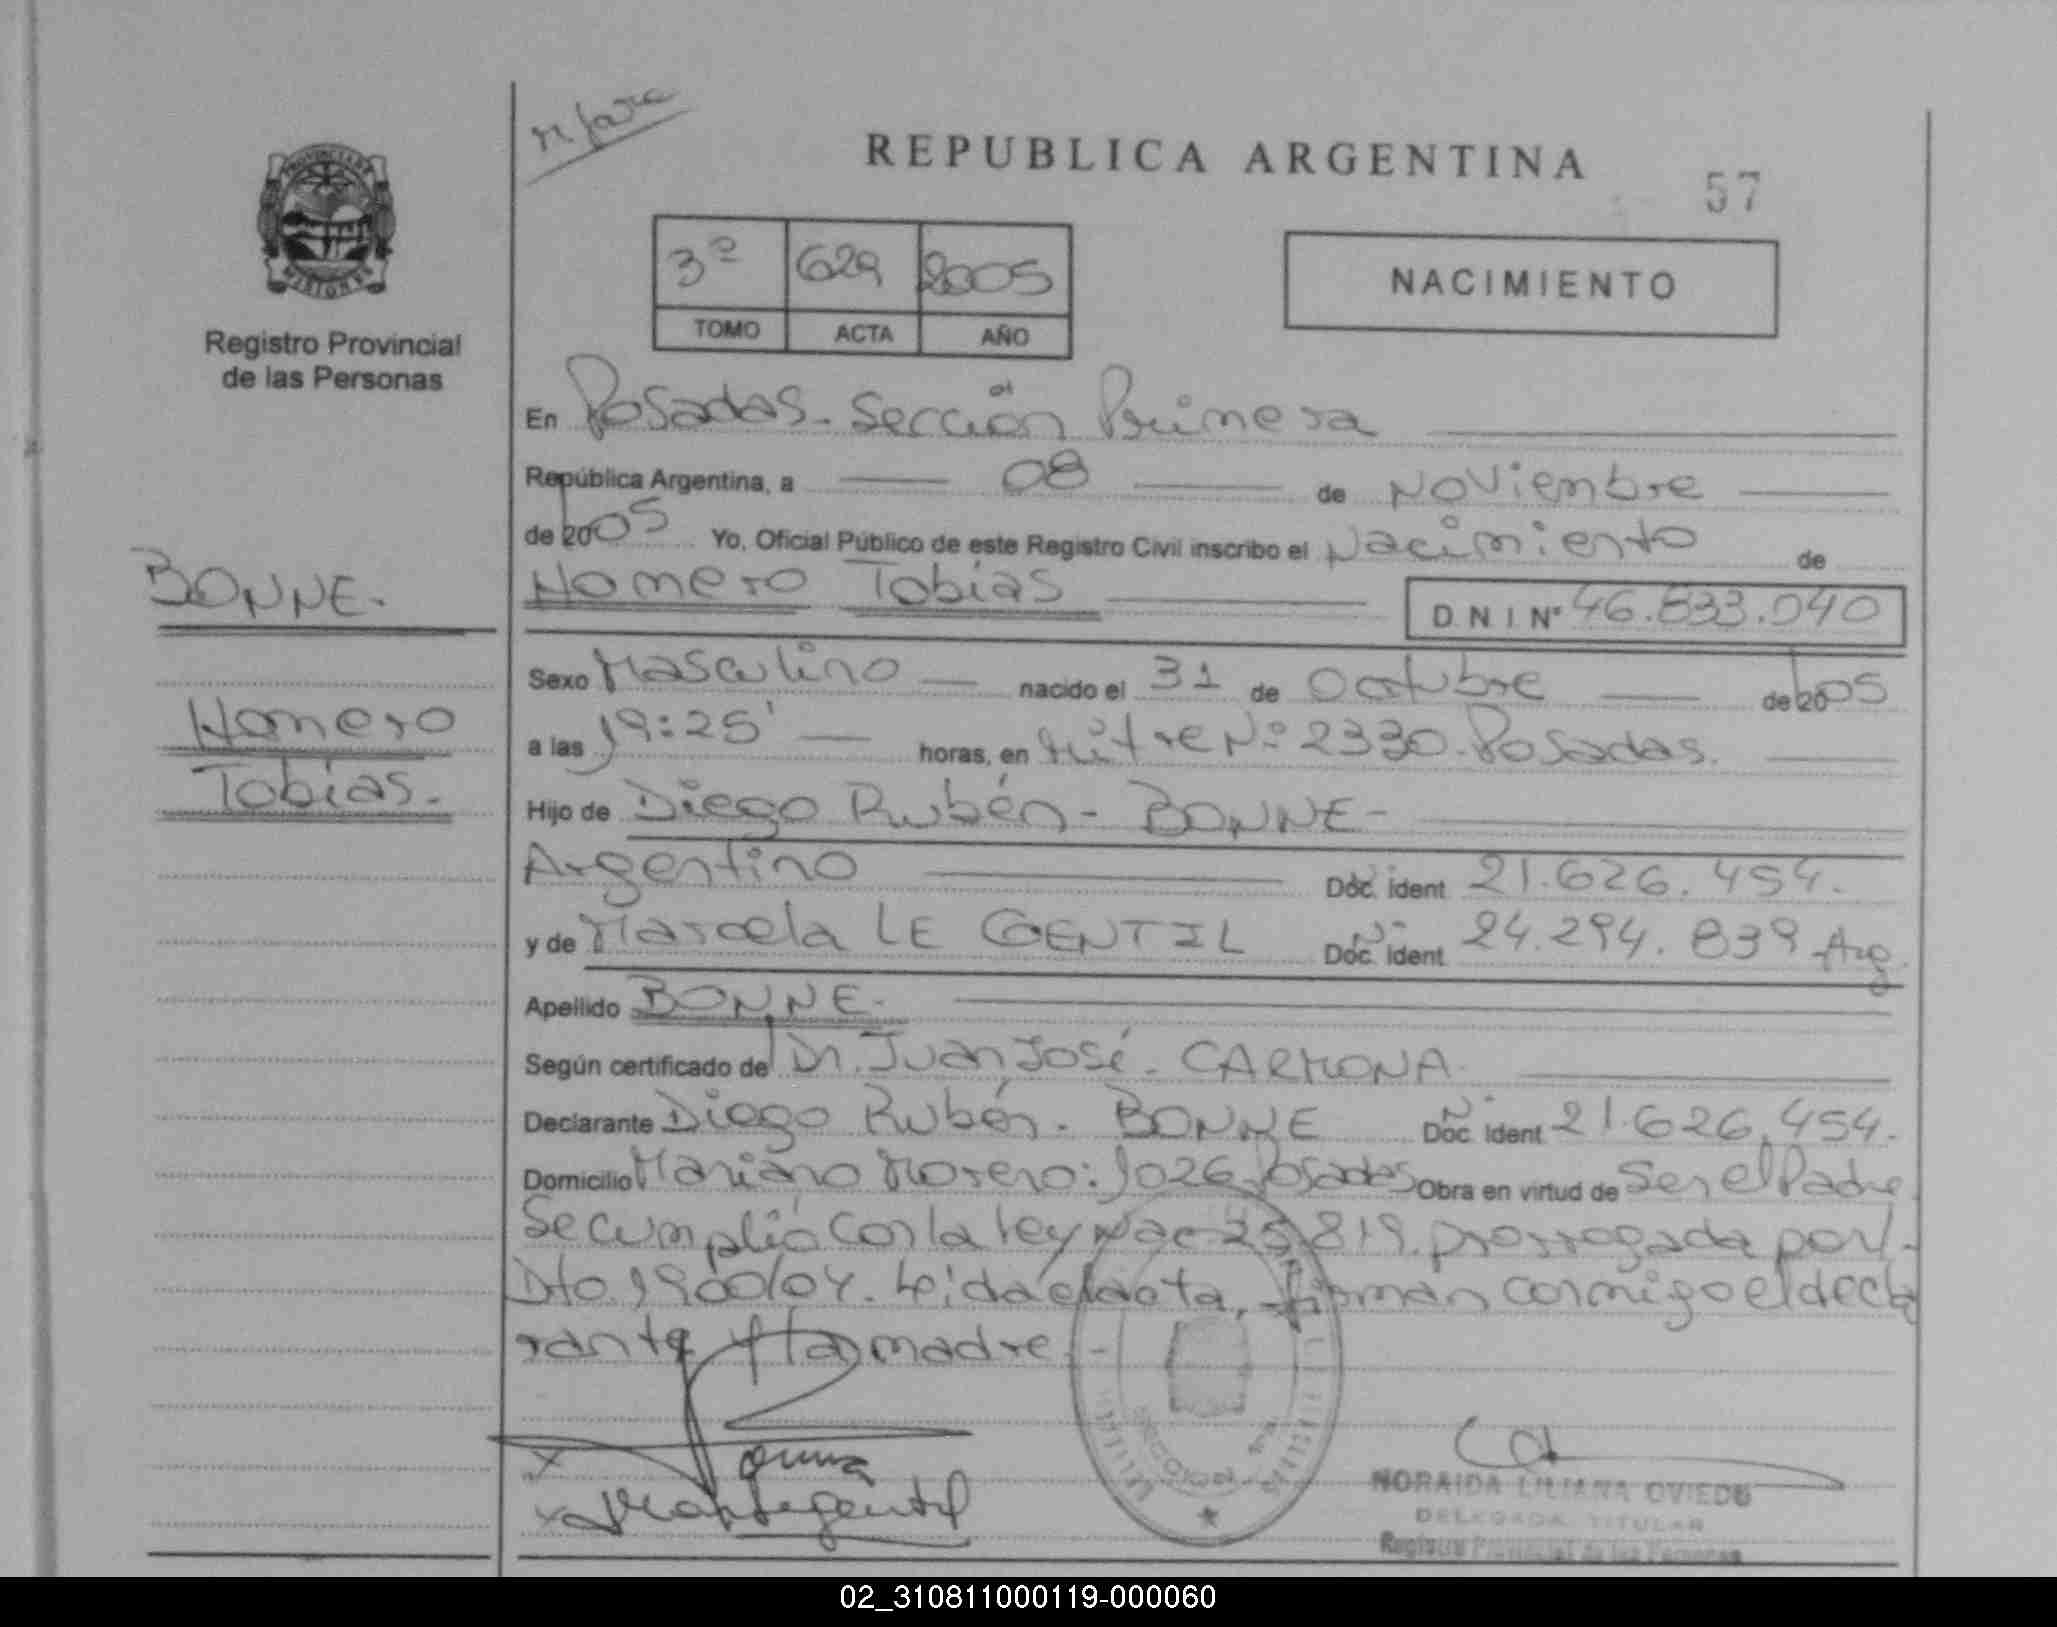 REPUBLICA ARGENTINA
57
PROVINCIA DE
MISIONES
Registro Provincial
de las Personas
3º 629 2005
TOMO ACTA AÑO
NACIMIENTO
En Posadas - Sección Primera
República Argentina, a 08 de Noviembre
de 2005 Yo, Oficial Público de este Registro Civil inscribo el Nacimiento de
Homero Tobías D.N.I Nº 46.833.040
BONNE.
Homero
Tobías.
Sexo Masculino nacido el 31 de Octubre de 2005
a las 19:25' horas, en Mitre Nº 2330. Posadas.
Hijo de Diego Rubén - BONNE -
Argentino Doc. ident 21.626.454.
y de Marcela LE GENTIL Doc. ident 24.294.839 Arg
Apellido BONNE.
Según certificado de Dr. Juan José - CARMONA.
Declarante Diego Rubén. BONNE Doc. Ident 21.626.454.
Domicilio Mariano Moreno: 1026 Posadas Obra en virtud de Ser el Padre
Se cumplió con la ley Nac 25.819. prorrogada por
Dto. 1900/04. Leída el acta, firman conmigo el decla
rante y la madre. -
SECCION
NORAIDA LILIANA OVIEDO
DELEGADA TITULAR
Registro Provincial de las Personas
02_310811000119-000060